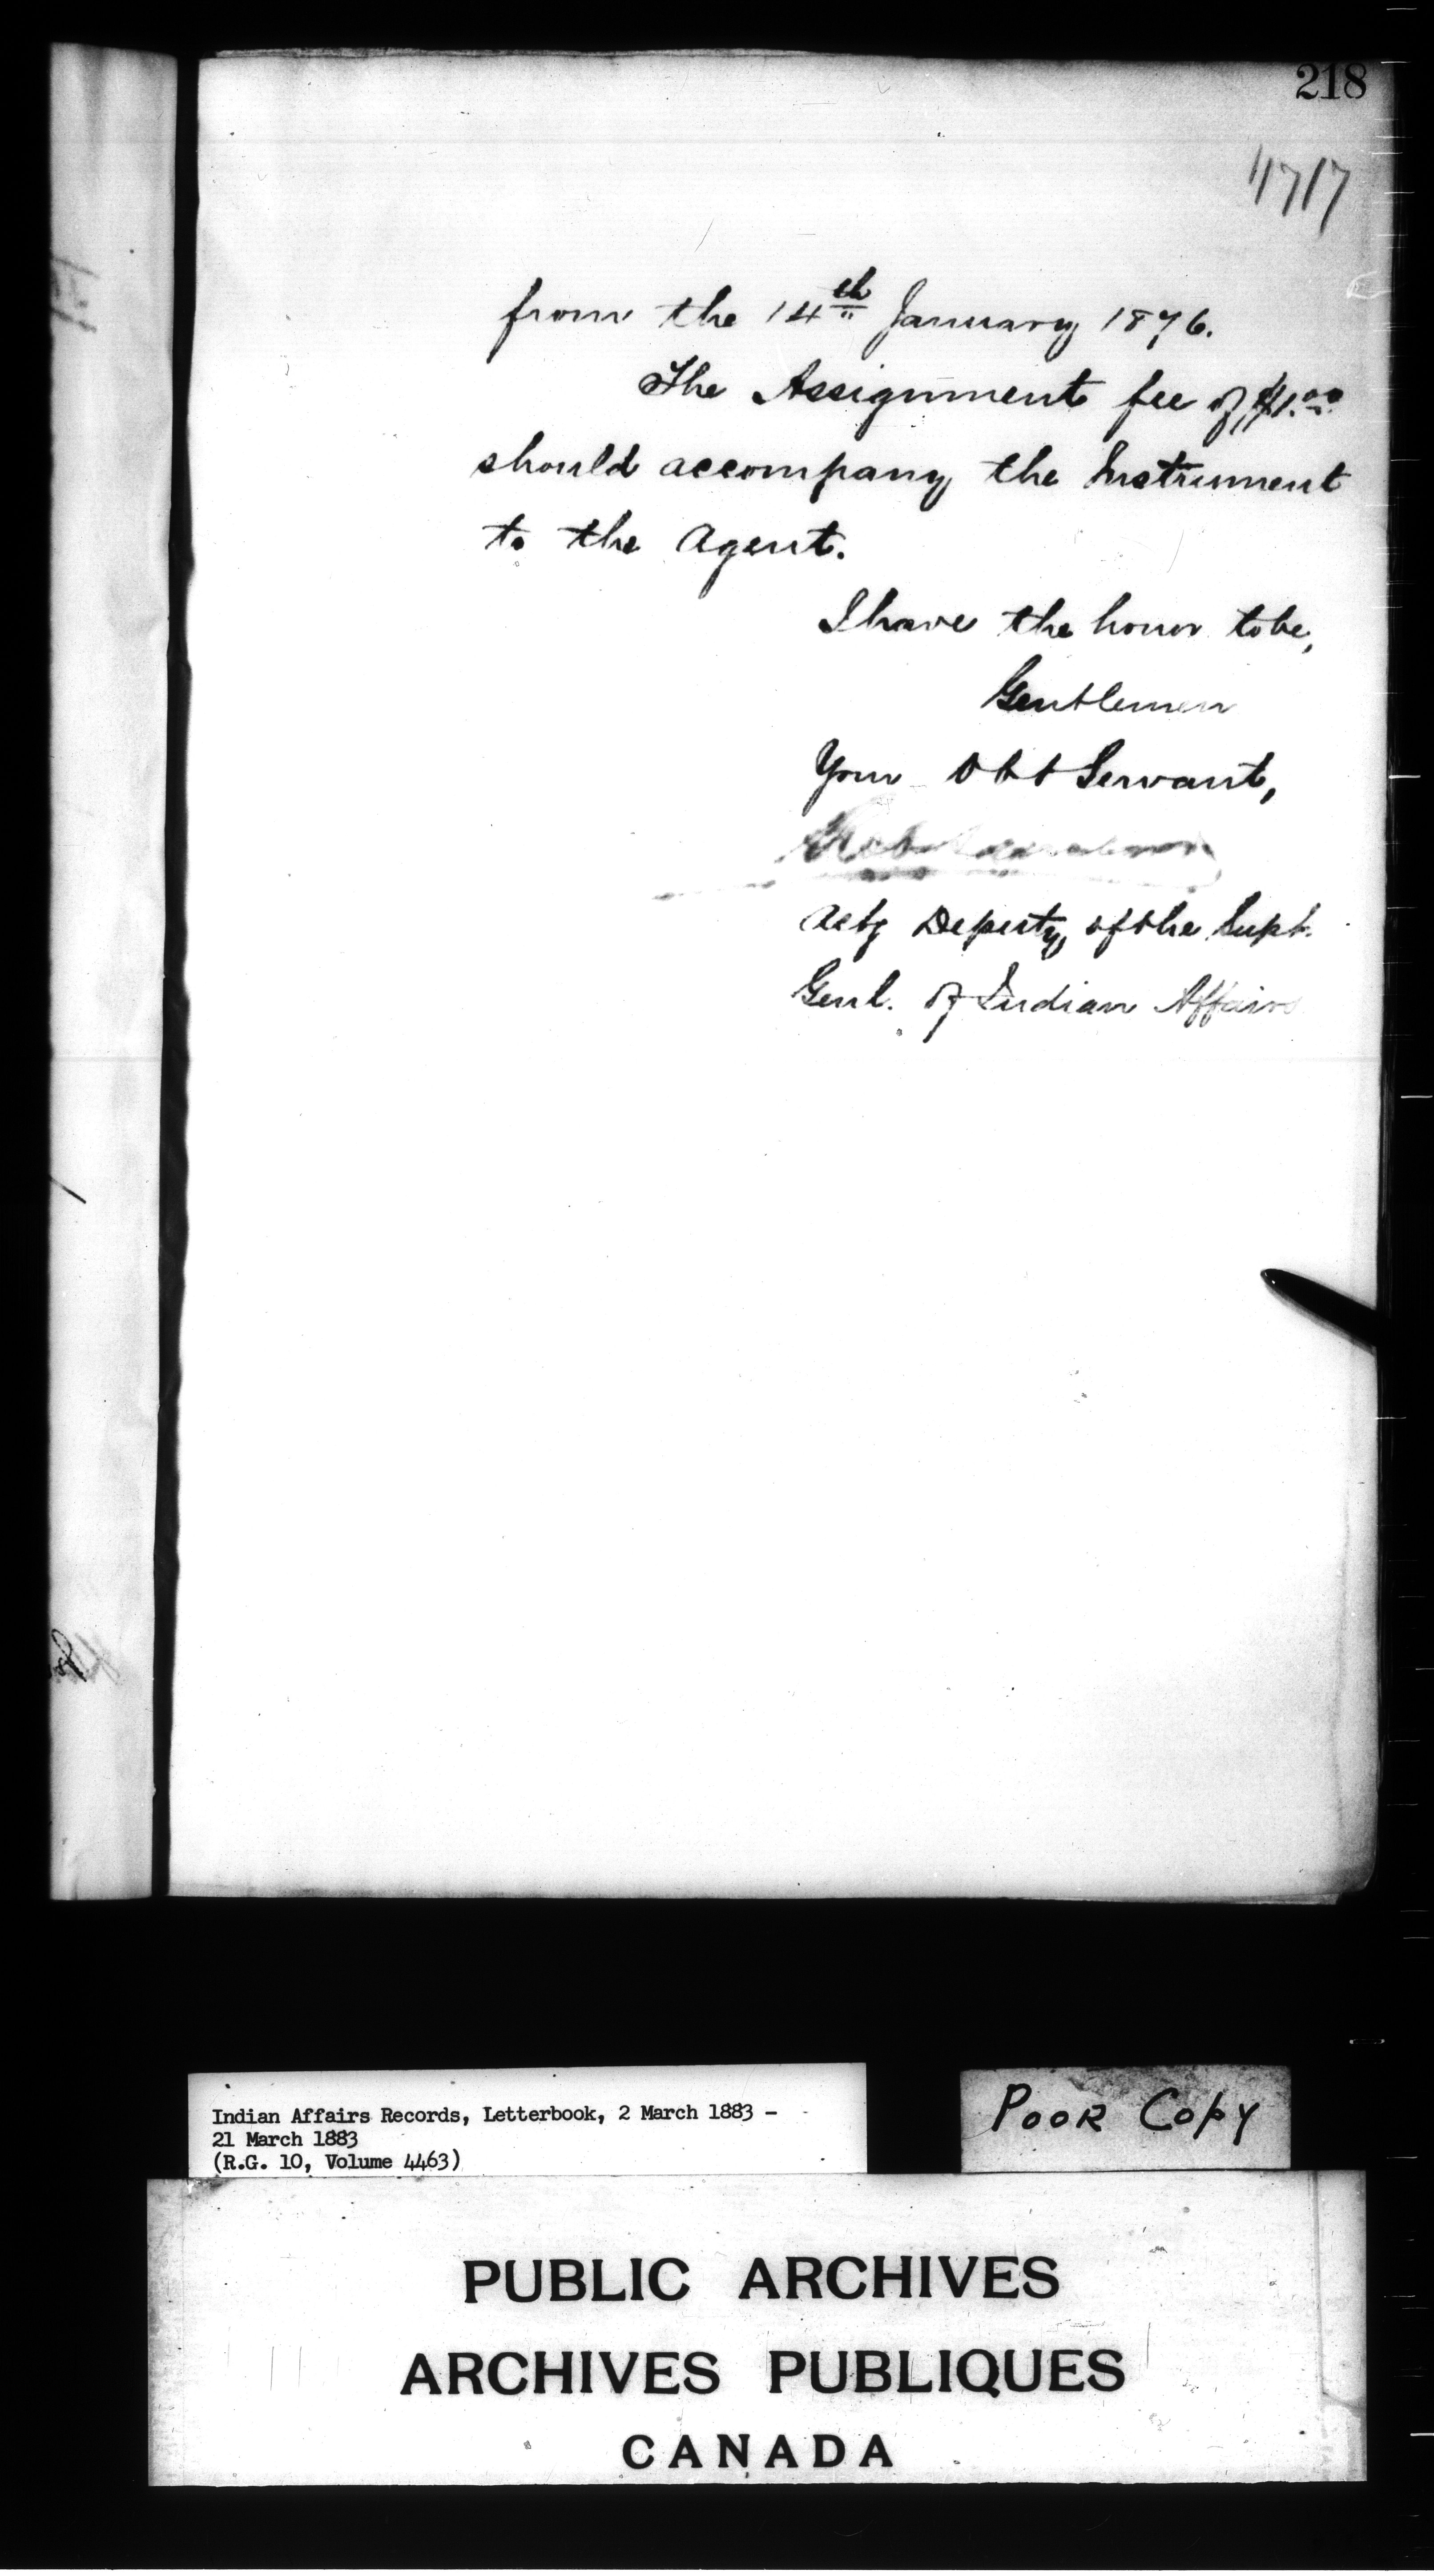 218
from the 14th January 1876.
The Assignment fee of $1.00
should accompany the Instrument
to the Agent.
I have the honor to be,
Gentlemen
Your Obt Servant,
Actg Deputy of the Supt.
Genl. of Indian Affairs
Indian Affairs Records, Letterbook, 2 March 1883 -
21 March 1883
(R.G. 10, Volume 4463)
POOR COPY
PUBLIC ARCHIVES
ARCHIVES PUBLIQUES
CANADA